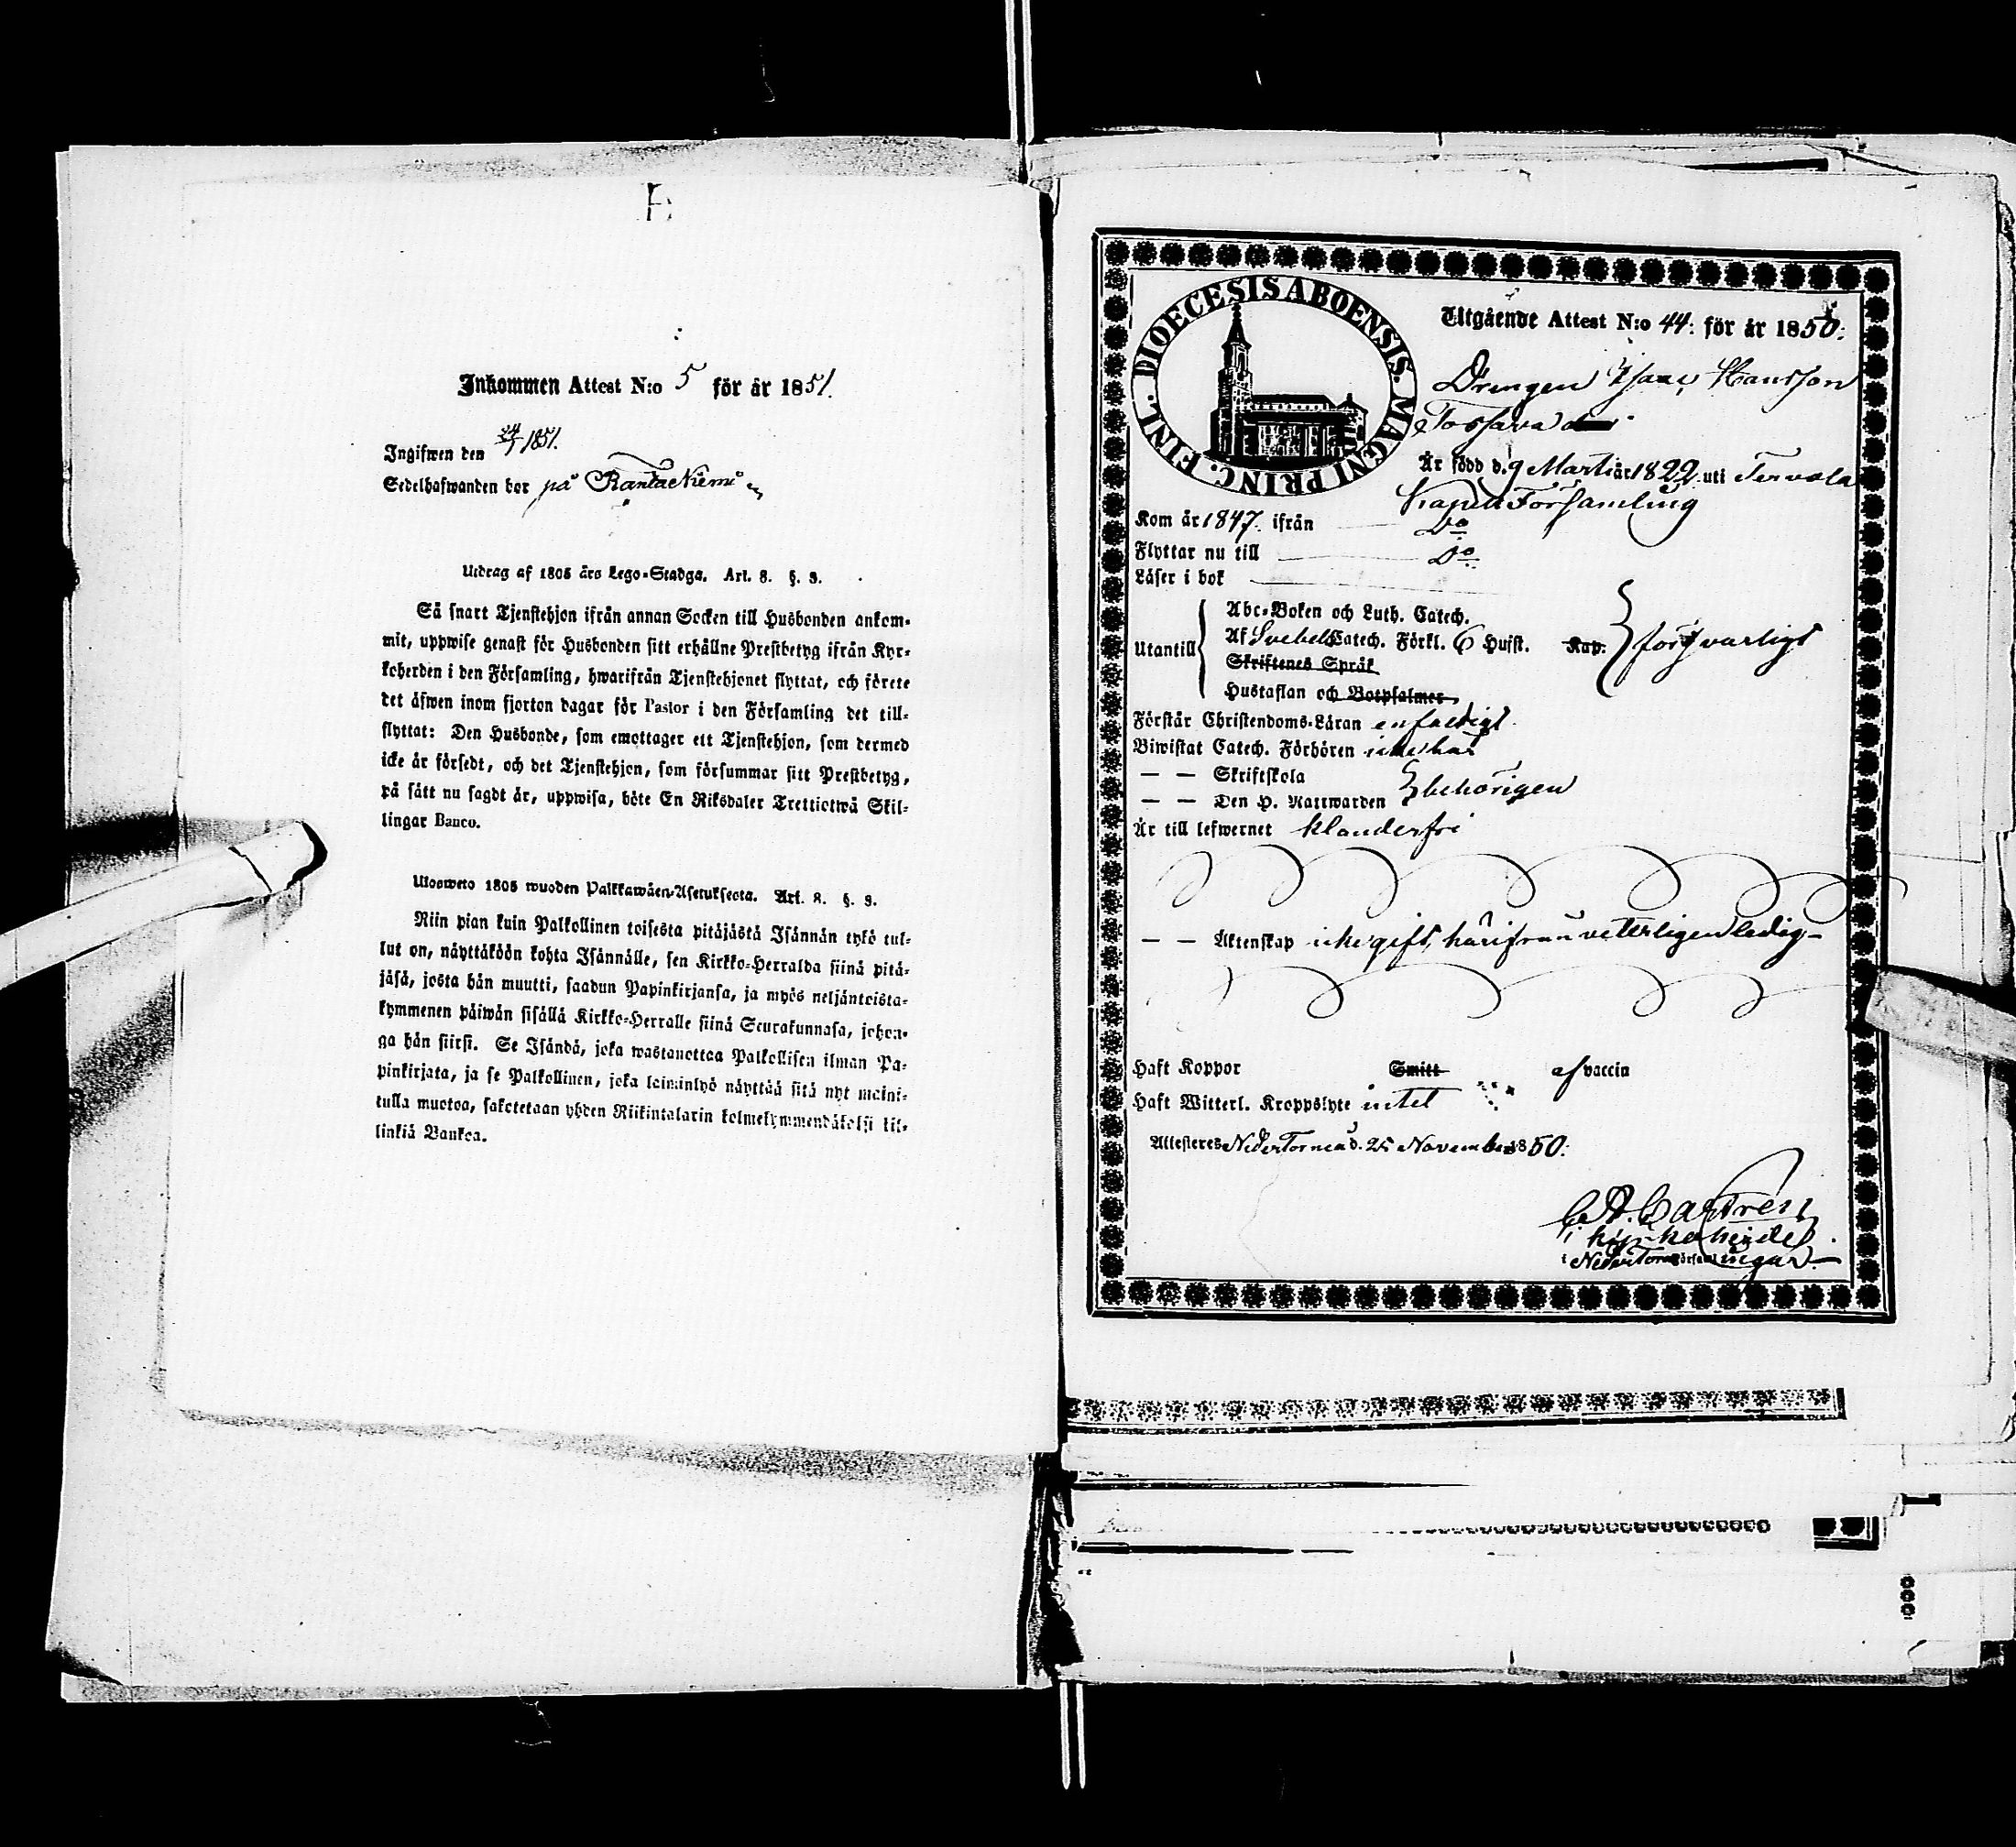 Inkommen Attest N:o 5 för år 1851.
Ingifwen den 24/1 1851.
Sedelhafwanden bor på RantaNiemi
Utdrag af 1805 års Lego-Stadga. Art. 8. §. 3.
Så snart Tjenstehjon ifrån annan Socken till Husbonden ankom-
mit, uppwise genast för Husbonden sitt erhållne Prestbetyg ifrån Kyr-
koherden i den Församling, hwarifrån Tjenstehjonet flyttat, och förete
det äfwen inom fjorton dagar för Pastor i den Församling det till-
flyttat: Den Husbonde, som emottager ett Tjenstehjon, som dermed
icke är försedt, och det Tjenstehjon, som försummar sitt Prestbetyg,
på sätt nu sagdt är, uppwisa, böte En Riksdaler Trettiotwå Skil-
lingar Banco.
Ulosweto 1805 wuoden Palkkawäen-Asetuksesta. Art. 8. §. 3.
Niin pian kuin Palkollinen toisesta pitäjästä Isännän tykö tul-
lut on, näyttäköön kohta Isännälle, sen Kirkko-Herralda siinä pitä-
jäsä, josta hän muutti, saadun Papinkirjansa, ja myös neljäntoista-
kymmenen päiwän sisällä Kirkko-Herralle siinä Seurakunnasa, johon-
ga hän siirsi. Se Isändä, joka wastanottaa Palkollisen ilman Pa-
pinkirjata, ja se Palkollinen, joka laiminlyö näyttää sitä nyt maini-
tulla muotoa, sakotetaan yhden Riikintalarin kolmekymmendäkolsi kil-
linkiä Bankoa.
DIOECESIS ABOENSIS. MAGNI PRINC. FINL.
Utgående Attest N:o 44: för år 1850:
Drengen Isaac Hansson
Tossava
Är född d. 9 Marti år 1822 uti Tervola
Kapell Församling
Kom år 1847. ifrån Do
Flyttar nu till Do
Läser i bok
Utantill
Abc-Boken och Luth. Catech.
Af Svebelii Catech. Förkl. 6 Hufst. Kap. försvarligt
Skriftenes Språk
Hustaflan och Botpsalmer
Förstår Christendoms-Läran enfaldigt
Biwistat Catech. Förhören icke har
— — Skriftskola
— — Den H. Nattwarden behörigen
Är till lefwernet klanderfri
— — Äktenskap icke gift, härifrån veterligen ledig
Haft Koppor Smitt af vaccin
Haft Witterl. Kroppslyte intet
Attesteras NederTorneå d. 25 November 1850:
C A. Castrén
i kyrkoherde
i NederTorneå Församlingar